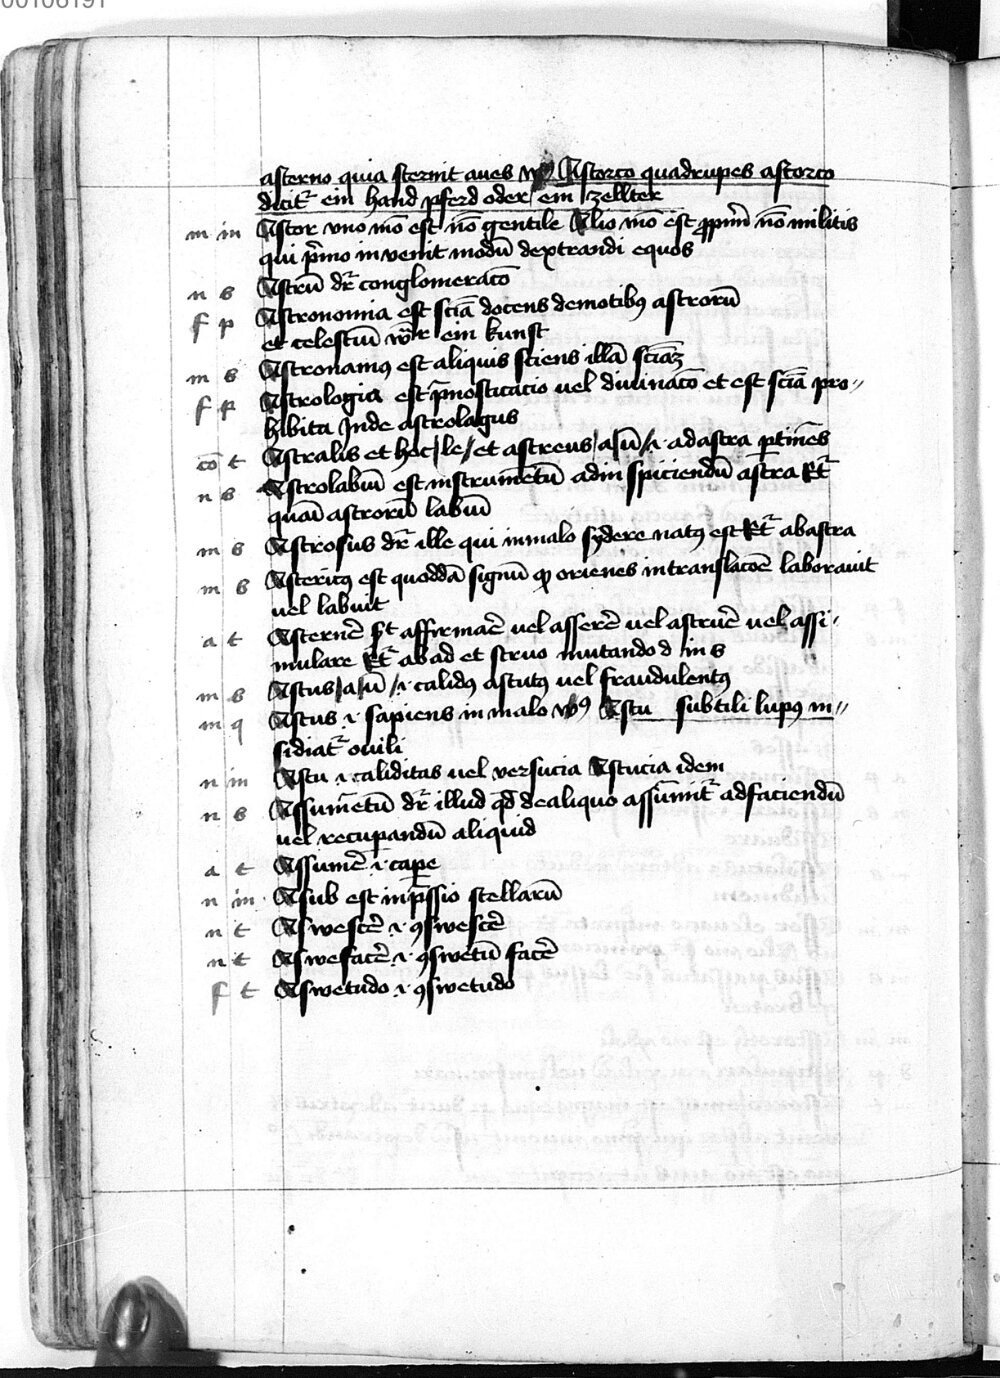 00106191
asterno quia sternit aues Astorco quadrupes astorco
dicit᷑ ein hand pferd oder ein zellter
m m Astor vno mo᷑ est no᷑ gentile Alio mo᷑ est ꝓpriu᷑ no᷑ militis
qui p᷑mo invenit modū dextrandi equos
n s Astrū dr᷑ conglomeraco᷑
f p Astronomia est scia᷑ docens de motibꝰ astrorū
et celestiū ein kunst
m s Astronamꝰ est aliquis sciens illā sciaꝫ
f p Astrologia est p᷑nosticacio uel diuinaco᷑ et est scia᷑ pro-
hibita Inde astrologus
co᷑ t Astralis et hoc /le/ et astreus /a/ū/ .i. ad astra ꝑtine᷑s
n s Astrolabiū est instrume᷑tū ad inspiciendū astra Et᷑
quasi astrorū labiū
m s Astrosus dr᷑ ille qui in malo sydere natꝰ est Et᷑ ab astra
m s Astericꝰ est quoddā signū qꝫ orienes in translaco᷑e laborauit
uel labuit
a t Asterne᷑ affirmar᷑ uel asserer᷑ uel astruer᷑ uel assi-
mulare Et᷑ ab ad et struo mutando d in s
m s Astus /a/ū/ .i. calidꝰ astutꝰ uel fraudulentꝰ
m q Astus .i. sapiens in malo Astu subtili lupꝰ in-
sidiat᷑ ouili
n m Astu .i. caliditas uel versucia Astucia idem
n s Assume᷑tū dr᷑ illud qd᷑ de aliquo assūmit᷑ ad faciendū
uel recuꝑandū aliquid
a t Assumer᷑ .i. caꝑe
n m Asub est inp᷑ssio stellarū
n t Aswescer᷑ .i. ꝯswescer᷑
n t Aswefacer᷑ .i. ꝯswetū facer᷑
f t Aswetudo .i. ꝯswetudo